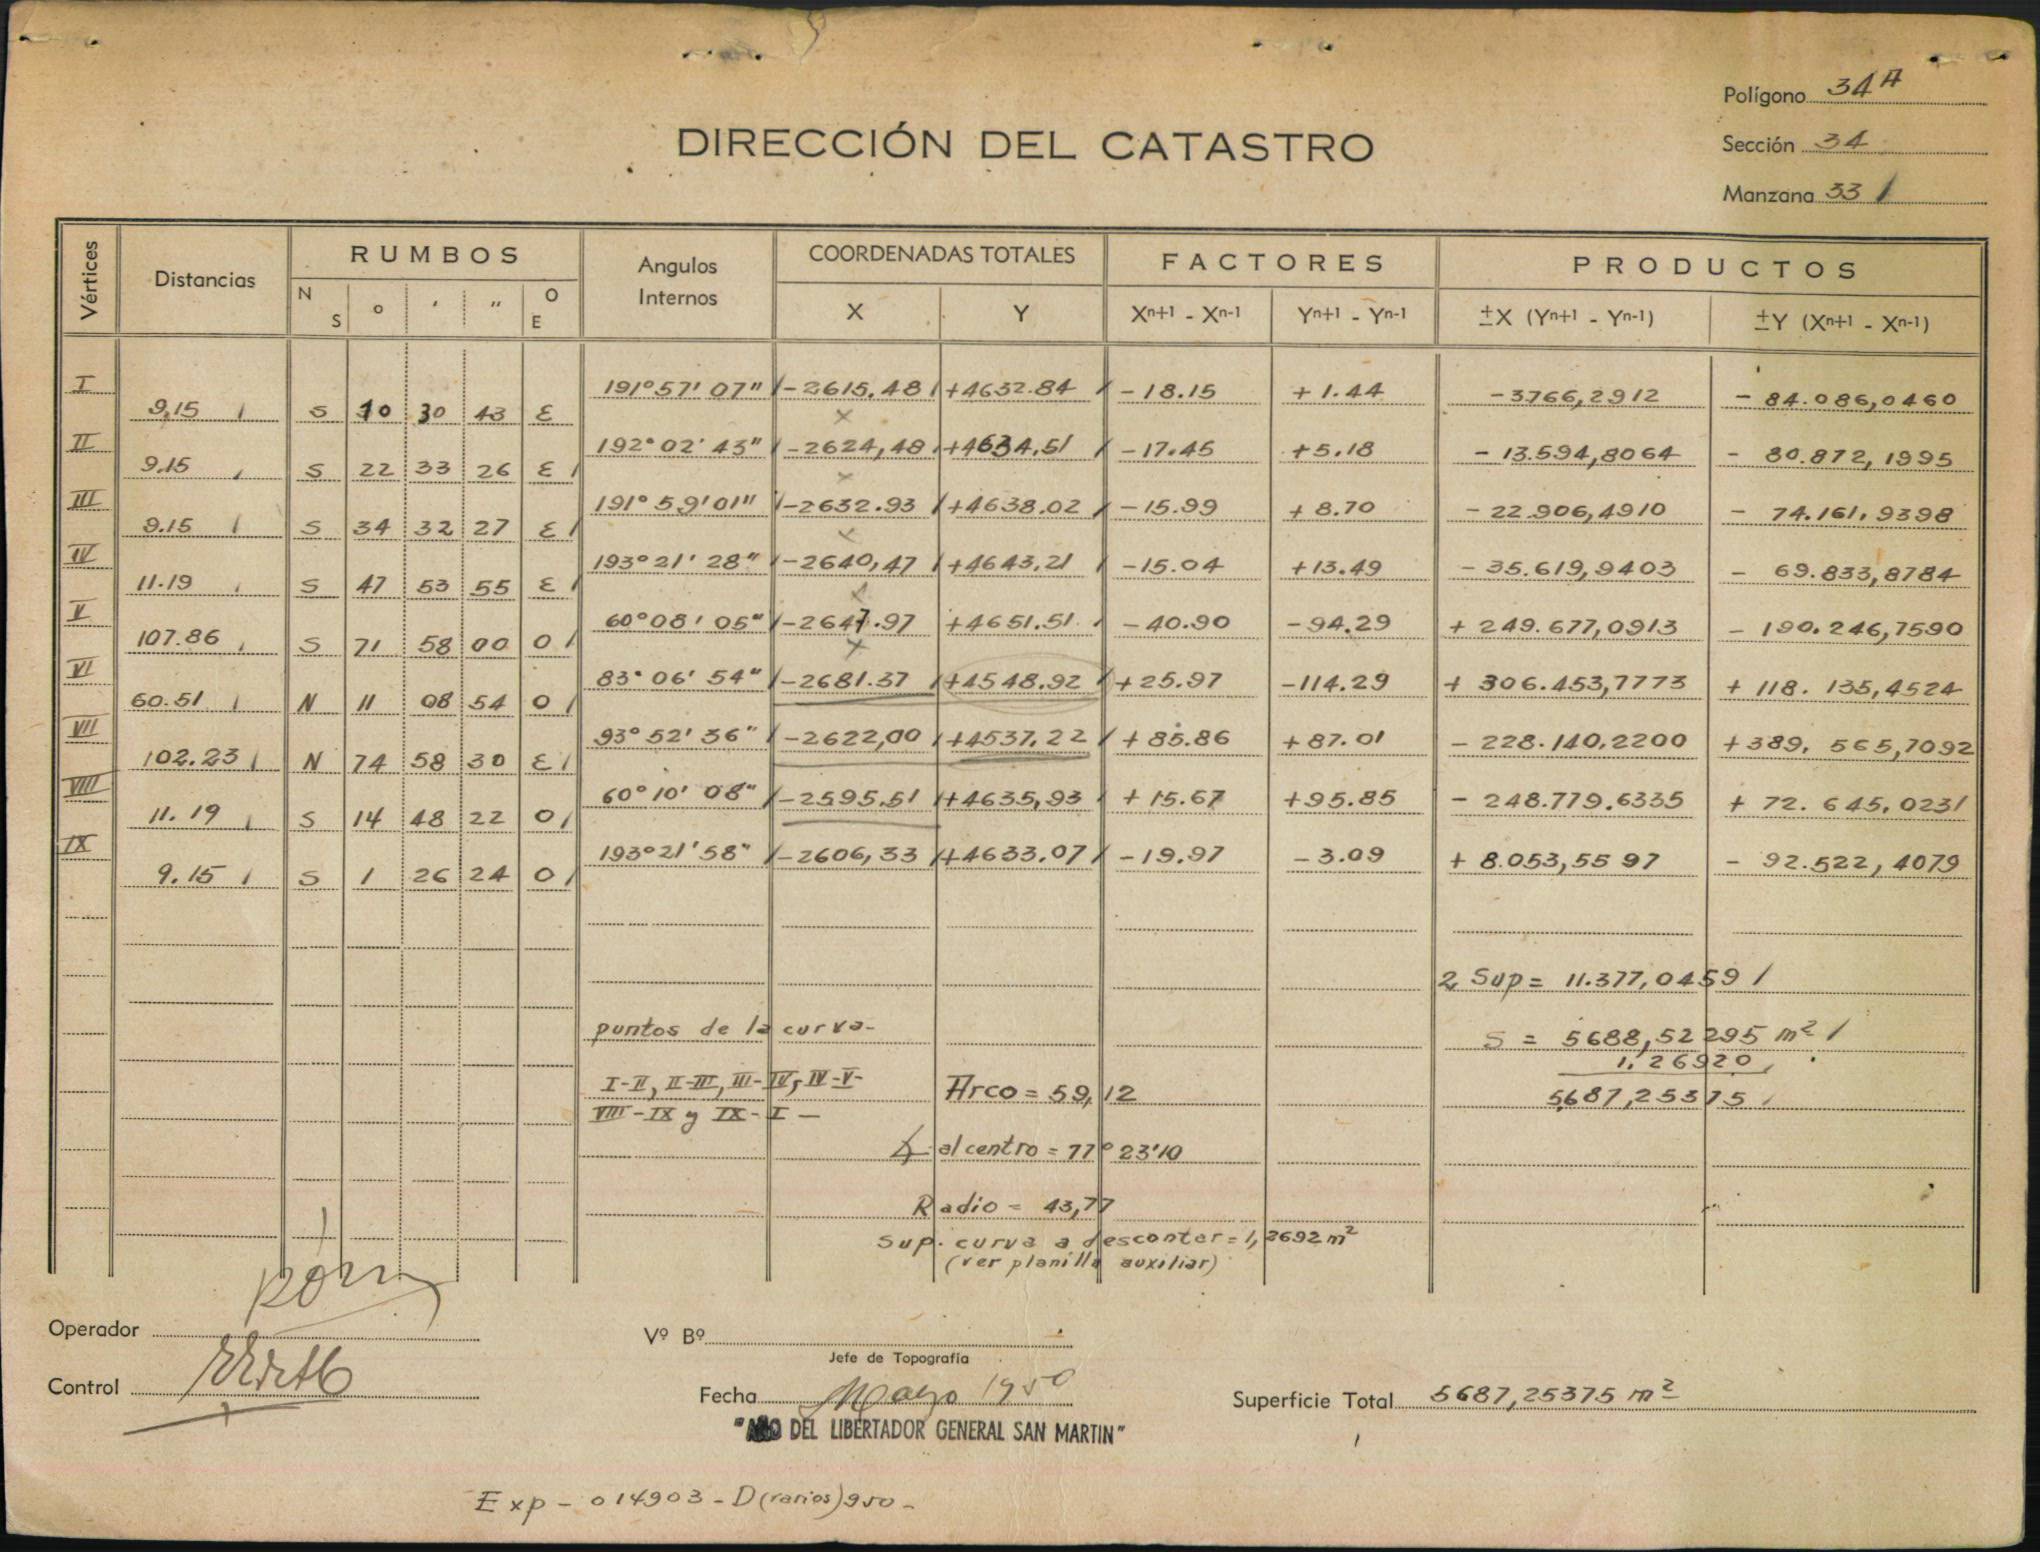 Polígono 34A
DIRECCIÓN DEL CATASTRO
Sección 34
Manzana 33
Vértices Distancias RUMBOS Angulos Internos COORDENADAS TOTALES FACTORES PRODUCTOS
N S o ' " O E X Y Xn+1 - Xn-1 Yn+1 - Yn-1 ±X (Yn+1 - Yn-1) ±Y (Xn+1 - Xn-1)
I 191°57'07" -2615,48 +4632.84 -18.15 +1.44 -3766,2912 -84.086,0460
9,15 S 10 30 43 E
II 192°02'43" -2624,48 +4634,51 -17.45 +5.18 -13.594,8064 -80.872,1995
9.15 S 22 33 26 E
III 191°59'01" -2632.93 +4638.02 -15.99 +8.70 -22.906,4910 -74.161,9398
9.15 S 34 32 27 E
IV 193°21'28" -2640,47 +4643,21 -15.04 +13.49 -35.619,9403 -69.833,8784
11.19 S 47 53 55 E
V 60°08'05" -2647.97 +4651.51 -40.90 -94.29 +249.677,0913 -190.246,7590
107.86 S 71 58 00 O
VI 83°06'54" -2681.37 +4548.92 +25.97 -114.29 +306.453,7773 +118.135,4524
60.51 N 11 08 54 O
VII 93°52'36" -2622,00 +4537.22 +85.86 +87.01 -228.140,2200 +389.565,7092
102.23 N 74 58 30 E
VIII 60°10'08" -2595.51 +4635,93 +15.67 +95.85 -248.779.6335 +72.645,0231
11.19 S 14 48 22 O
IX 193°21'58" -2606,33 +4633.07 -19.97 -3.09 +8.053,5597 -92.522,4079
9.15 S 1 26 24 O
2 Sup = 11.377,0459
puntos de la curva-
S = 5688,52295 m²
1,26920
I-II, II-III, III-IV, IV-V-
Arco = 59,12
5687,25375
VIII-IX y IX-I -
∡ al centro = 77°23'10
Radio = 43,77
Sup. curva a descontar = 1,2692 m²
(ver planilla auxiliar)
Operador
Vº Bº
Jefe de Topografía
Control
Fecha Mayo 1950
Superficie Total 5687,25375 m²
"AÑO DEL LIBERTADOR GENERAL SAN MARTIN"
Exp - 014903 - D (varios) 950 -